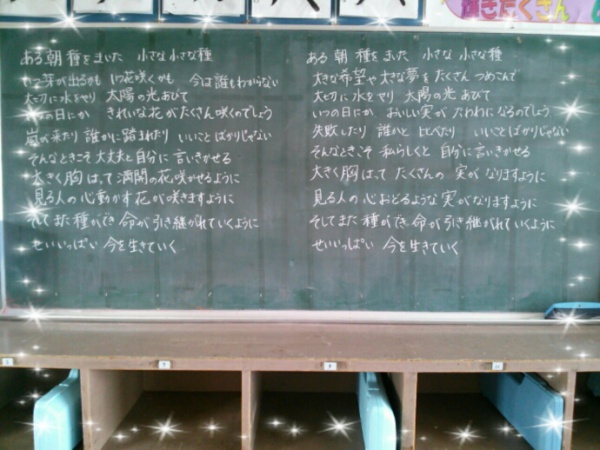 描きたくさん
ある朝 種をまいた 小さな 小さな種
いつ芽が出るかも いつ花咲くかも 今は誰もわからない
大切に水をやり 太陽の光あびて
いつの日にか きれいな花がたくさん咲くのでしょう
嵐が来たり 誰かに踏まれたり いいことばかりじゃない
そんなときこそ 大丈夫と自分に言いきかせる
大きく胸はって 満開の花咲かせるように
見る人の心動かす花が咲きますように
そしてまた種ができ 命が引き継がれていくように
せいいっぱい 今を生きていく
ある朝 種をまいた 小さな 小さな種
大きな希望や大きな夢をたくさんつめこんで
大切に水をやり 太陽の光あびて
いつの日にか おいしい実がたわわになるのでしょう
失敗したり 誰かと比べたり いいことばかりじゃない
そんなときこそ 私らしくと 自分に言いきかせる
大きく胸はって たくさんの 実がなりますように
見る人の心おどるような実がなりますように
そしてまた種ができ 命が引き継がれていくように
せいいっぱい 今を生きていく